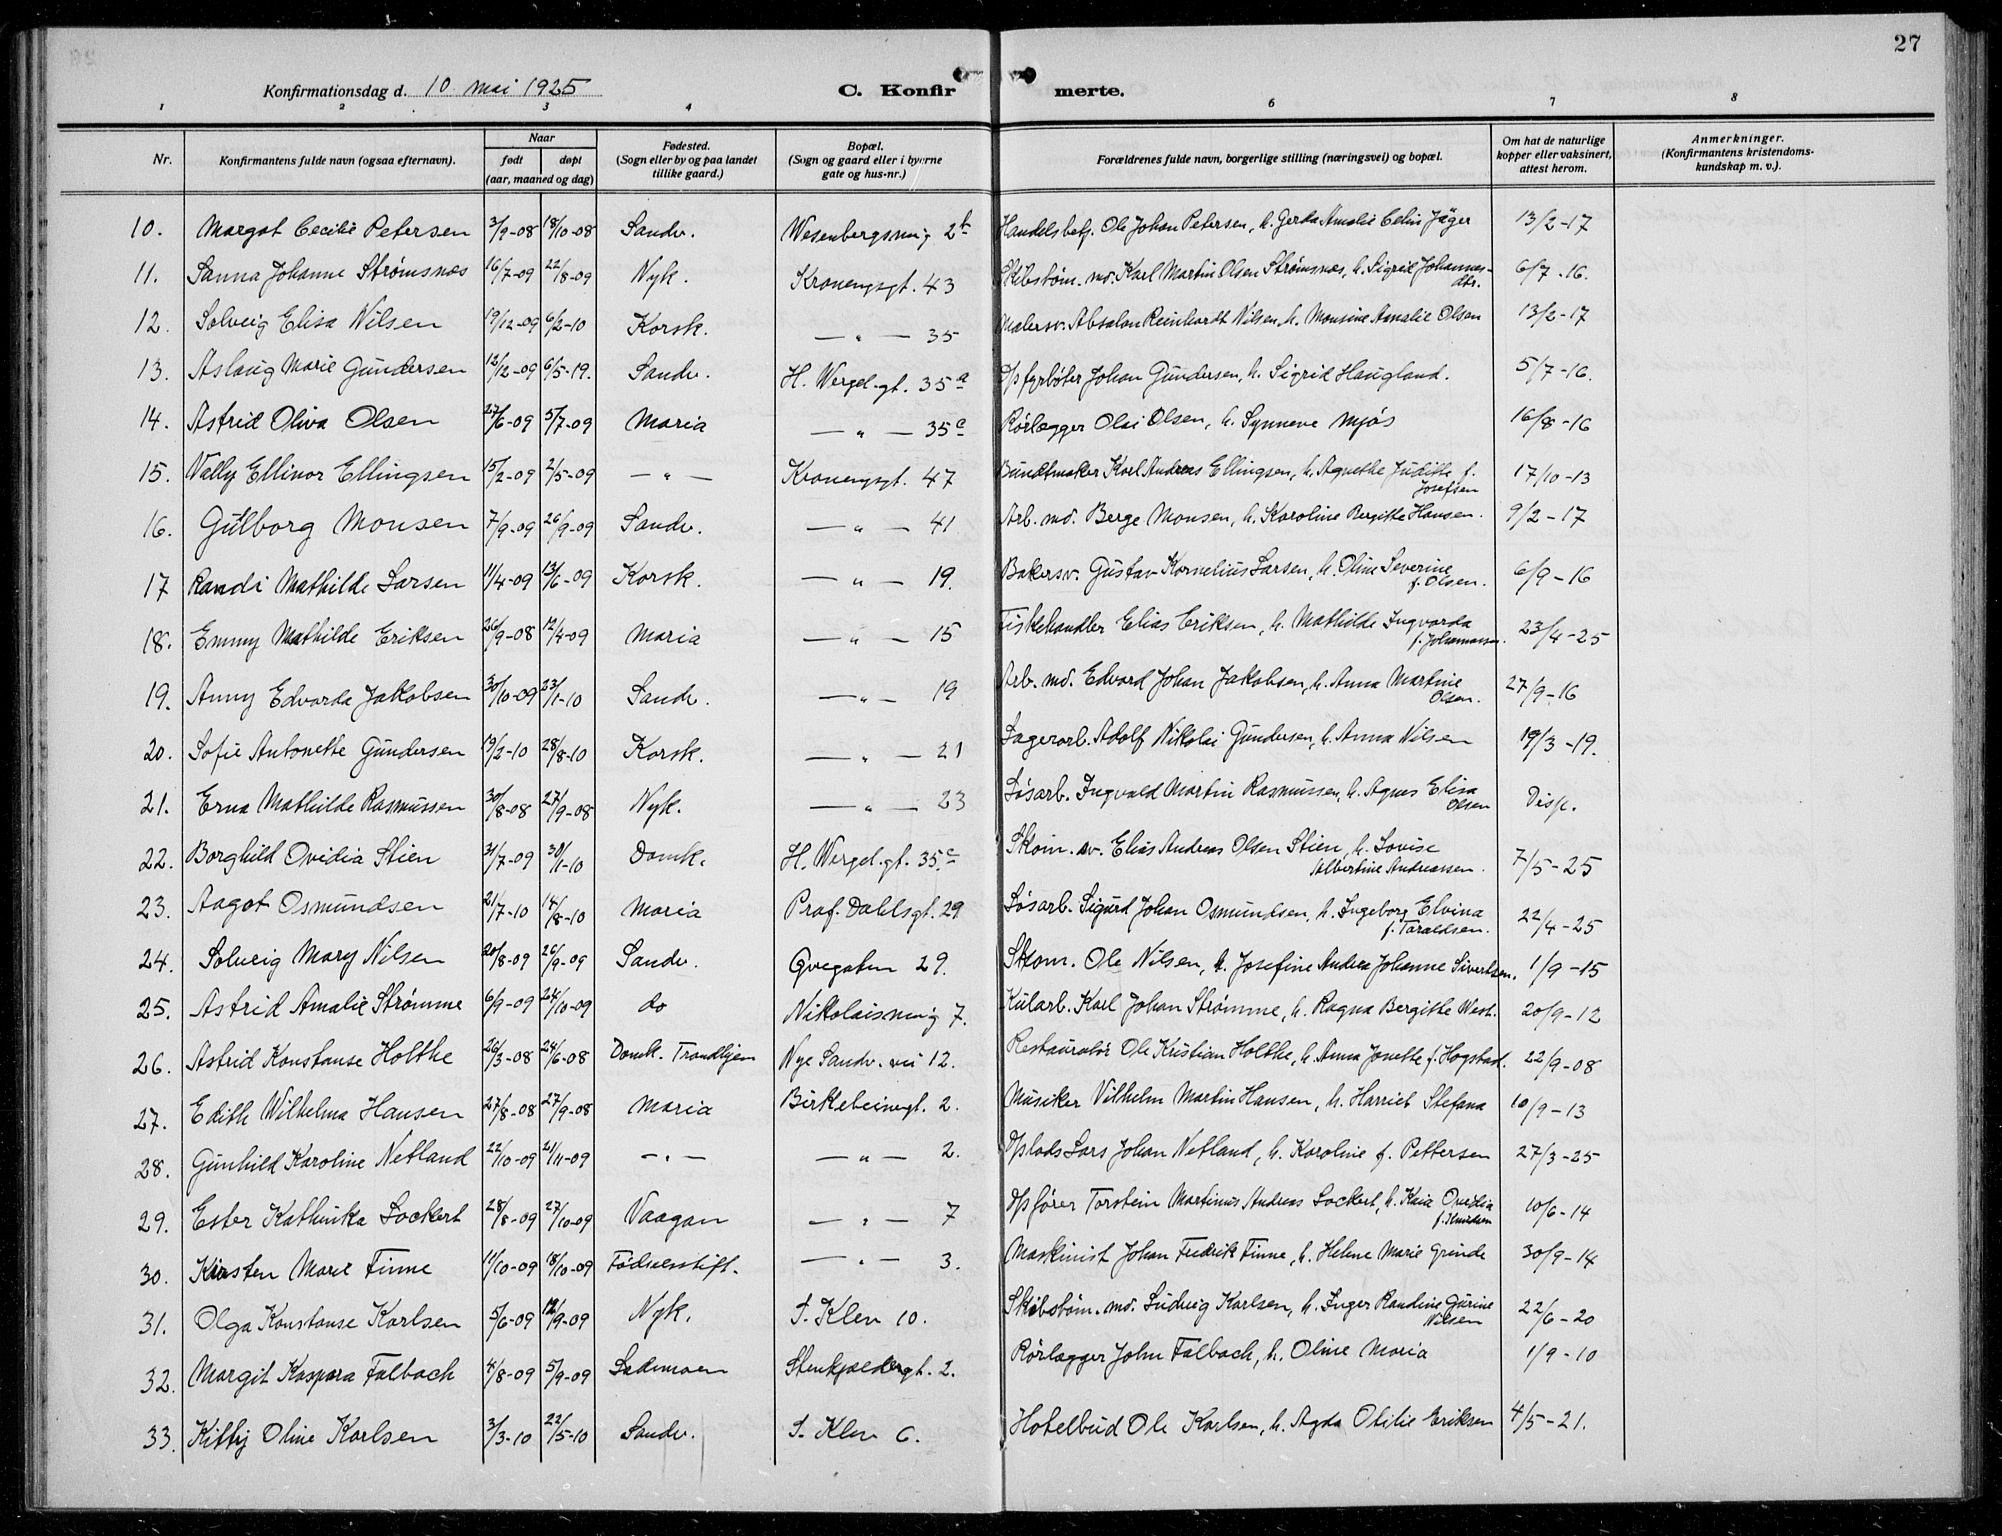 27
Konfirmationsdag d. 10 mai 1925
C. Konfir merte.
1 2 3 4 6 7 8
Nr. Konfirmantens fulde navn (ogsaa efternavn). Naar født døpt (aar, maaned og dag) Fødested. (Sogn eller by og paa landet tillike gaard.) Bopæl. (Sogn og gaard eller i byerne gate og hus-nr.) Forældrenes fulde navn, borgerlige stilling (næringsvei) og bopæl. Om hat de naturlige kopper eller vaksinert, attest herom. Anmerkninger. (Konfirmantens kristendoms-kundskap m. v.).
10. Margot Cecilie Petersen 3/9-08 18/10-08 Sandv. Wesenbergsmug 2b Handelsbetj. Ole Johan Petersen, h. Gerda Amalie Celin Jäger 13/2-17
11. Sanna Johanne Strømsnes 16/7-09 22/8-09 Nyk. Kronengsgt. 43 Skibstøm. md. Karl Martin Olsen Strømsnes, h. Sigrid Johannes-dtr. 6/7-16.
12. Solveig Elisa Nilsen 19/12-09 6/2-10 Korsk. — " — 35 Malersv. Absalon Reinhardt Nilsen, h. Monsine Amalie Olsen 13/2-17
13. Aslaug Marie Gundersen 12/12-09 6/5-19. Sandv. H. Wergel.gt. 35a Dpfyrbøter Johan Gundersen, h. Sigrid Haugland. 5/7-16.
14. Astrid Oliva Olsen 27/6-09 5/7-09 Maria — " — 35c Rørlægger Olai Olsen, h. Synneve Mjøs 16/8-16
15. Vally Ellinor Ellingsen 15/2-09 2/5-09 — " — Kronengsgt. 47 Bundtmaker Karl Andreas Ellingsen, h. Agnethe Juditte f. Josefsen 17/10-13
16. Gulborg Monsen 7/9-09 26/9-09 Sandv. — " — 41 Arb. md. Berge Monsen, h. Karoline Bergitte Hansen. 9/2-17
17 Randi Mathilde Larsen 11/4-09 13/6-09 Korsk. — " — 19. Bakersv. Gustav Kornelius Larsen, h. Oline Severine f. Olsen. 6/9-16
18. Emmy Mathilde Eriksen 26/9-08 12/4-09 Maria — " — 15 Fiskehandler Elias Eriksen, h. Mathilde Ingvarda f. Johannesen. 23/4-25
19. Anny Edvarda Jakobsen 30/10-09 23/1-10 Sandv. — " — 19 Arb. md. Edvard Johan Jakobsen, h. Anna Martine Olsen. 27/9-16
20. Sofie Antonette Gundersen 19/2-10 28/8-10 Korsk. — " — 21 Lagerarb. Adolf Nikolai Gundersen, h. Anna Nilsen 19/3-19.
21. Erna Mathilde Rasmussen 30/8-08 27/9-08 Nyk. — " — 23 Løsarb. Ingvald Martin Rasmussen, h. Agnes Elisa Olsen Disp.
22. Borghild Ovidia Stien 31/7-09 30/1-10 Domk. H. Wergel.gt. 35c Skom. sv. Elias Andreas Olsen Stien, h. Lovise Albertine Andreassen. 7/5-25
23. Aagot Osmundsen 21/7-10 14/8-10 Maria Prof. Dahlsgt. 29 Løsarb. Sigurd Johan Osmundsen, h. Ingeborg Elvina f. Taraldsen. 22/4-25
24. Solveig Mary Nilsen 20/8-09 26/9-09 Sandv. Øvregaten 29. Skom. Ole Nilsen, h. Josefine Andrea Johanne Sivertsen. 1/9-15
25. Astrid Amalie Strømme 6/9-09 24/10-09 do Nikolaismug 7. Kularb. Karl Johan Strømme, h. Ragna Bergithe West. 20/9-12
26. Astrid Konstanse Holthe 26/3-08 24/6-08 Domk. Trondhjem Nye Sandv. vei 12. Restauratør Ole Kristian Holthe, h. Anna Jonette f. Hogstad. 22/9-08
27. Edith Wilhelma Hansen 27/8-08 27/9-08 Maria Birkebeinergt. 2. Musiker Vilhelm Martin Hansen, h. Harriet Stefana 10/9-13
28. Gunhild Karoline Netland 22/10-09 21/11-09 — " — — " — 2. Dplods Lars Johan Netland, h. Karoline f. Pettersen 27/3-25
29. Ester Kathinka Lockert 28/8-09 27/10-09 Vaagan — " — 7 Dpfører Torstein Martinus Andreas Lockert, h. Kaia Ovidia f. Knudsen 10/6-14
30. Kirsten Marie Finne 11/10-09 18/10-09 Fødselsstift. — " — 3. Maskinist Johan Fredrik Finne, h. Helene Marie Grinde 30/9-14
31. Olga Konstanse Karlsen 5/6-09 12/9-09 Nyk. S. Klev 10. Skibstøm. md. Ludvig Karlsen, h. Inger Randine Gurine Nilsen 22/6-20
32. Margit Kaspara Falbach 4/8-09 5/9-09 Lademoen Stenkjeldergt. 2. Rørlægger John Falbach, h. Oline Maria 1/9-10
33. Kitty Oline Karlsen 3/3-10 22/5-10 Sandv. S. Klev 6. Hotelbud Ole Karlsen, h. Agda Otilie Eriksen 4/5-21.